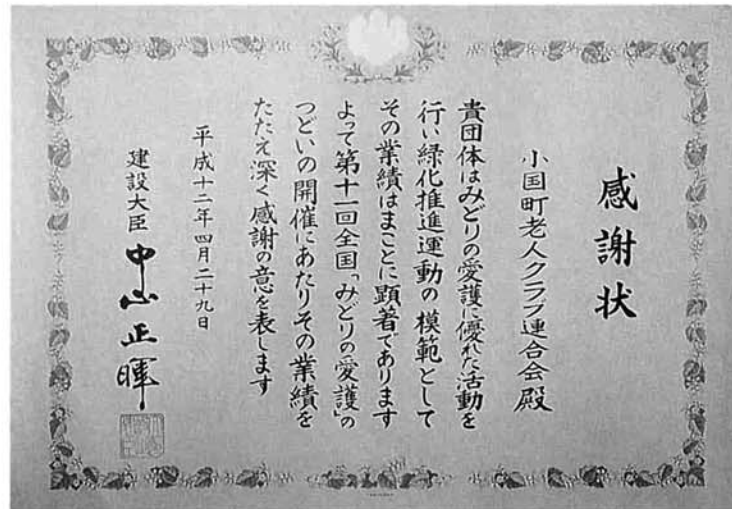 感謝状
小国町老人クラブ連合会殿
貴団体はみどりの愛護に優れた活動を
行い緑化推進運動の模範として
その業績はまことに顕著であります
よって第十一回全国「みどりの愛護」の
つどいの開催にあたりその業績を
たたえ深く感謝の意を表します
平成十二年四月二十九日
建設大臣 中山正暉